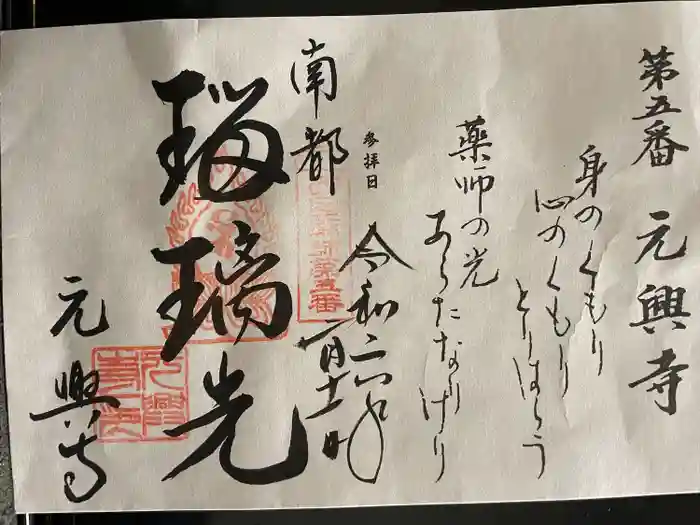 第五番 元興寺
身のくもり
心のくもり
とりはらう
薬師の光
あらたなりけり
参拝日
令和
南都
第五番
瑠璃光
元興寺